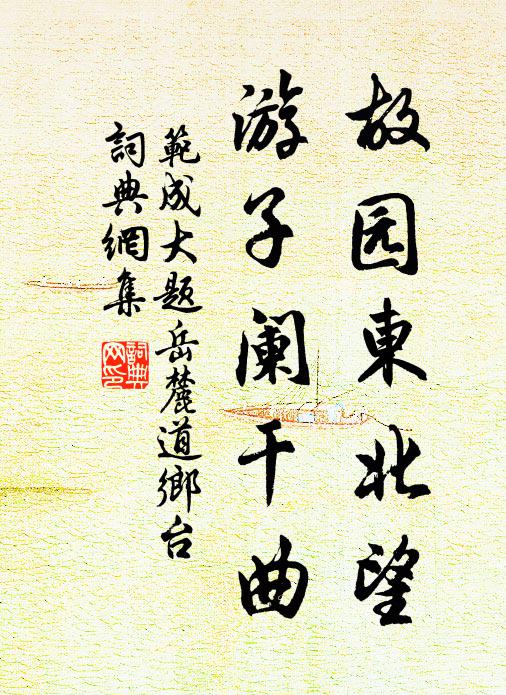 故园東北望
游子阑干曲
範成大题岳麓道鄉台
詞典網集
詞典网印